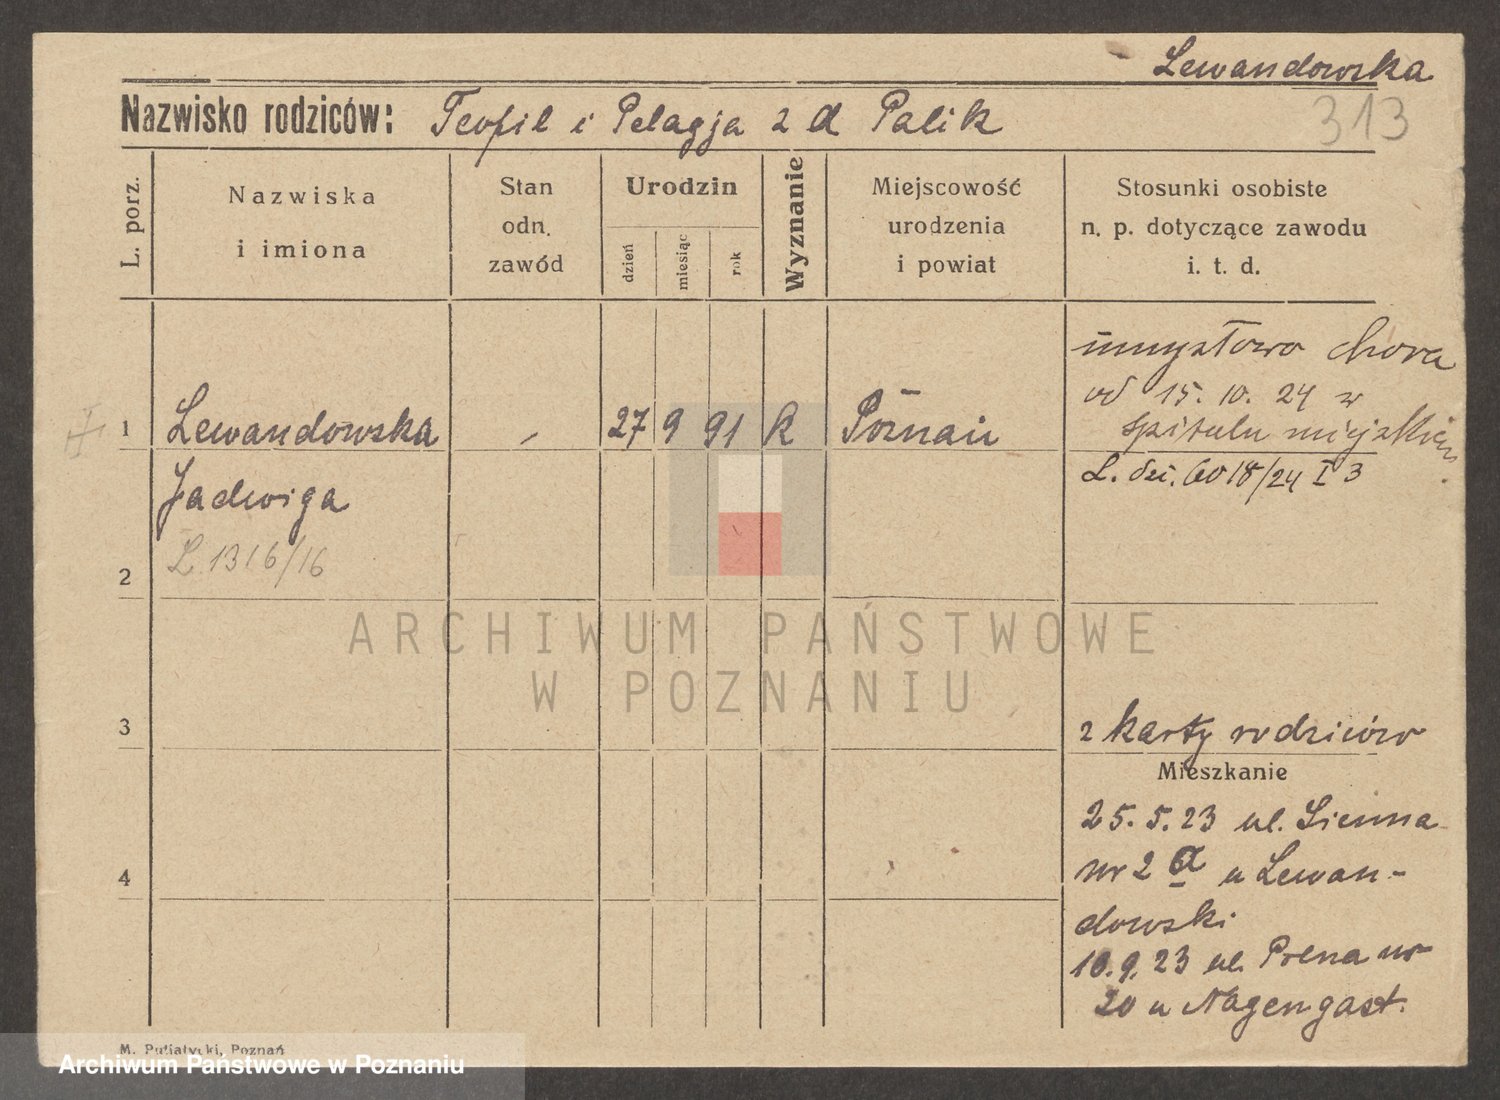 Lewandowska
313
Nazwisko rodziców: Teofil i Pelagja z d Palik
L. porz.
Nazwiska
i imiona
Stan
odn.
zawód
Urodzin
dzień
miesiąc
rok
Wyznanie
Miejscowość
urodzenia
i powiat
Stosunki osobiste
n. p. dotyczące zawodu
i. t. d.
1
Lewandowska
-
27 9 91 k
Poznań
umysłowo chora
od 15. 10. 24 w
szpitalu miejskim
L. dz. 6018/24 I 3
Jadwiga
L 1316/16
2
ARCHIWUM PAŃSTWOWE
W POZNANIU
3
2 karty rodziców
Mieszkanie
25. 5. 23 ul. Sienna
nr 2 a u Lewan-
dowski
4
10. 9. 23 ul. Polna nr
20 u Nagengast.
M. Putiatycki, Poznań
Archiwum Państwowe w Poznaniu